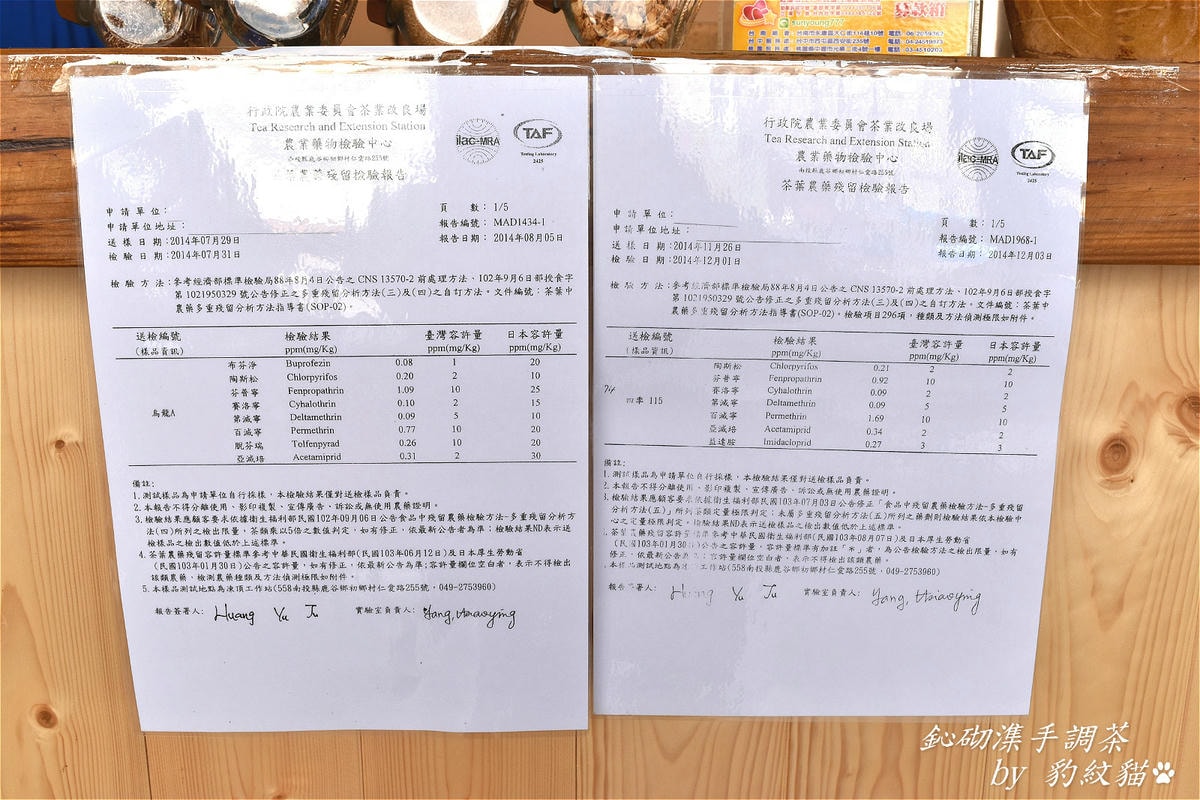 sunyoung777
行政院農業委員會茶業改良場
Tea Research and Extension Station
農業藥物檢驗中心
南投縣鹿谷鄉初鄉村仁愛路255號
茶葉農藥殘留檢驗報告
ilac-MRA
TAF
Testing Laboratory
2425
申請單位：
申請單位地址：
送樣日期：2014年07月29日
檢驗日期：2014年07月31日
頁 數：1/5
報告編號：MAD1434-1
報告日期：2014年08月05日
檢驗方法：參考經濟部標準檢驗局88年8月4日公告之 CNS 13570-2 前處理方法、102年9月6日部授食字
第 1021950329 號公告修正之多重殘留分析方法(三)及(四)之自訂方法。文件編號：茶葉中
農藥多重殘留分析方法指導書(SOP-02)。
送檢編號 檢驗結果 臺灣容許量 日本容許量
(樣品資訊) ppm(mg/Kg) ppm(mg/Kg) ppm(mg/Kg)
布芬淨 Buprofezin 0.08 1 20
陶斯松 Chlorpyrifos 0.20 2 10
芬普寧 Fenpropathrin 1.09 10 25
賽洛寧 Cyhalothrin 0.10 2 15
烏龍A 第滅寧 Deltamethrin 0.09 5 10
百滅寧 Permethrin 0.77 10 20
脫芬瑞 Tolfenpyrad 0.26 10 20
亞滅培 Acetamiprid 0.31 2 30
備註：
1. 測試樣品為申請單位自行採樣，本檢驗結果僅對送檢樣品負責。
2. 本報告不得分離使用、影印複製、宣傳廣告、訴訟或無使用農藥證明。
3. 檢驗結果應顧客要求依據衛生福利部民國102年09月06日公告食品中殘留農藥檢驗方法-多重殘留分析方
法(四)所列之檢出限量，茶類乘以5倍之數值判定，如有修正，依最新公告者為準；檢驗結果ND表示送
檢樣品之檢出數值低於上述標準。
4. 茶葉農藥殘留容許量標準參考中華民國衛生福利部(民國103年06月12日)及日本厚生勞動省
(民國103年01月30日)公告之容許量，如有修正，依最新公告者為準；容許量欄位空白者，表示不得檢出
該類農藥，檢測農藥種類及方法偵測極限如附件。
5. 本樣品測試地點為凍頂工作站(558南投縣鹿谷鄉初鄉村仁愛路255號，049-2753960)
報告簽署人： Huang Yu Ju 實驗室負責人： Yang, Hsiaoying
行政院農業委員會茶業改良場
Tea Research and Extension Station
農業藥物檢驗中心
南投縣鹿谷鄉初鄉村仁愛路255號
茶葉農藥殘留檢驗報告
ilac-MRA
TAF
Testing Laboratory
2425
申請單位：
申請單位地址：
送樣日期：2014年11月26日
檢驗日期：2014年12月01日
頁 數：1/5
報告編號：MAD1968-1
報告日期：2014年12月03日
檢驗方法：參考經濟部標準檢驗局88年8月4日公告之 CNS 13570-2 前處理方法、102年9月6日部授食字
第 1021950329 號公告修正之多重殘留分析方法(三)及(四)之自訂方法。文件編號：茶葉中
農藥多重殘留分析方法指導書(SOP-02)。檢驗項目296項，種類及方法偵測極限如附件。
送檢編號 檢驗結果 臺灣容許量 日本容許量
(樣品資訊) ppm(mg/Kg) ppm(mg/Kg) ppm(mg/Kg)
陶斯松 Chlorpyrifos 0.21 2 2
芬普寧 Fenpropathrin 0.92 10 10
賽洛寧 Cyhalothrin 0.09 2 2
四季 115 第滅寧 Deltamethrin 0.09 5 5
百滅寧 Permethrin 1.69 10 10
亞滅培 Acetamiprid 0.34 2 2
益達胺 Imidacloprid 0.27 3 3
備註：
1. 測試樣品為申請單位自行採樣，本檢驗結果僅對送檢樣品負責。
2. 本報告不得分離使用、影印複製、宣傳廣告、訴訟或無使用農藥證明。
檢驗結果應顧客要求依據衛生福利部民國103年07月03日公告修正「食品中殘留農藥檢驗方法-多重殘留
分析方法(五)」所列茶類定量極限判定；未屬多重殘留分析方法(五)所列之藥劑則檢驗結果依本檢驗中
心之定量極限判定。檢驗結果ND表示送檢樣品之檢出數值低於上述標準。
茶葉農藥殘留容許量標準參考中華民國衛生福利部(民國103年08月07日)及日本厚生勞動省
(民國103年01月30日)公告之容許量，容許量標準有加註「*」者，為公告檢驗方法之檢出限量，如有
修正，依最新公告為準；容許量欄位空白者，表示不得檢出該類農藥。
本樣品測試地點為凍頂工作站(558南投縣鹿谷鄉初鄉村仁愛路255號，049-2753960)
報告簽署人： Huang Yu Ju 實驗室負責人： Yang, Hsiaoying
鈊砌潗手調茶
by 豹紋貓